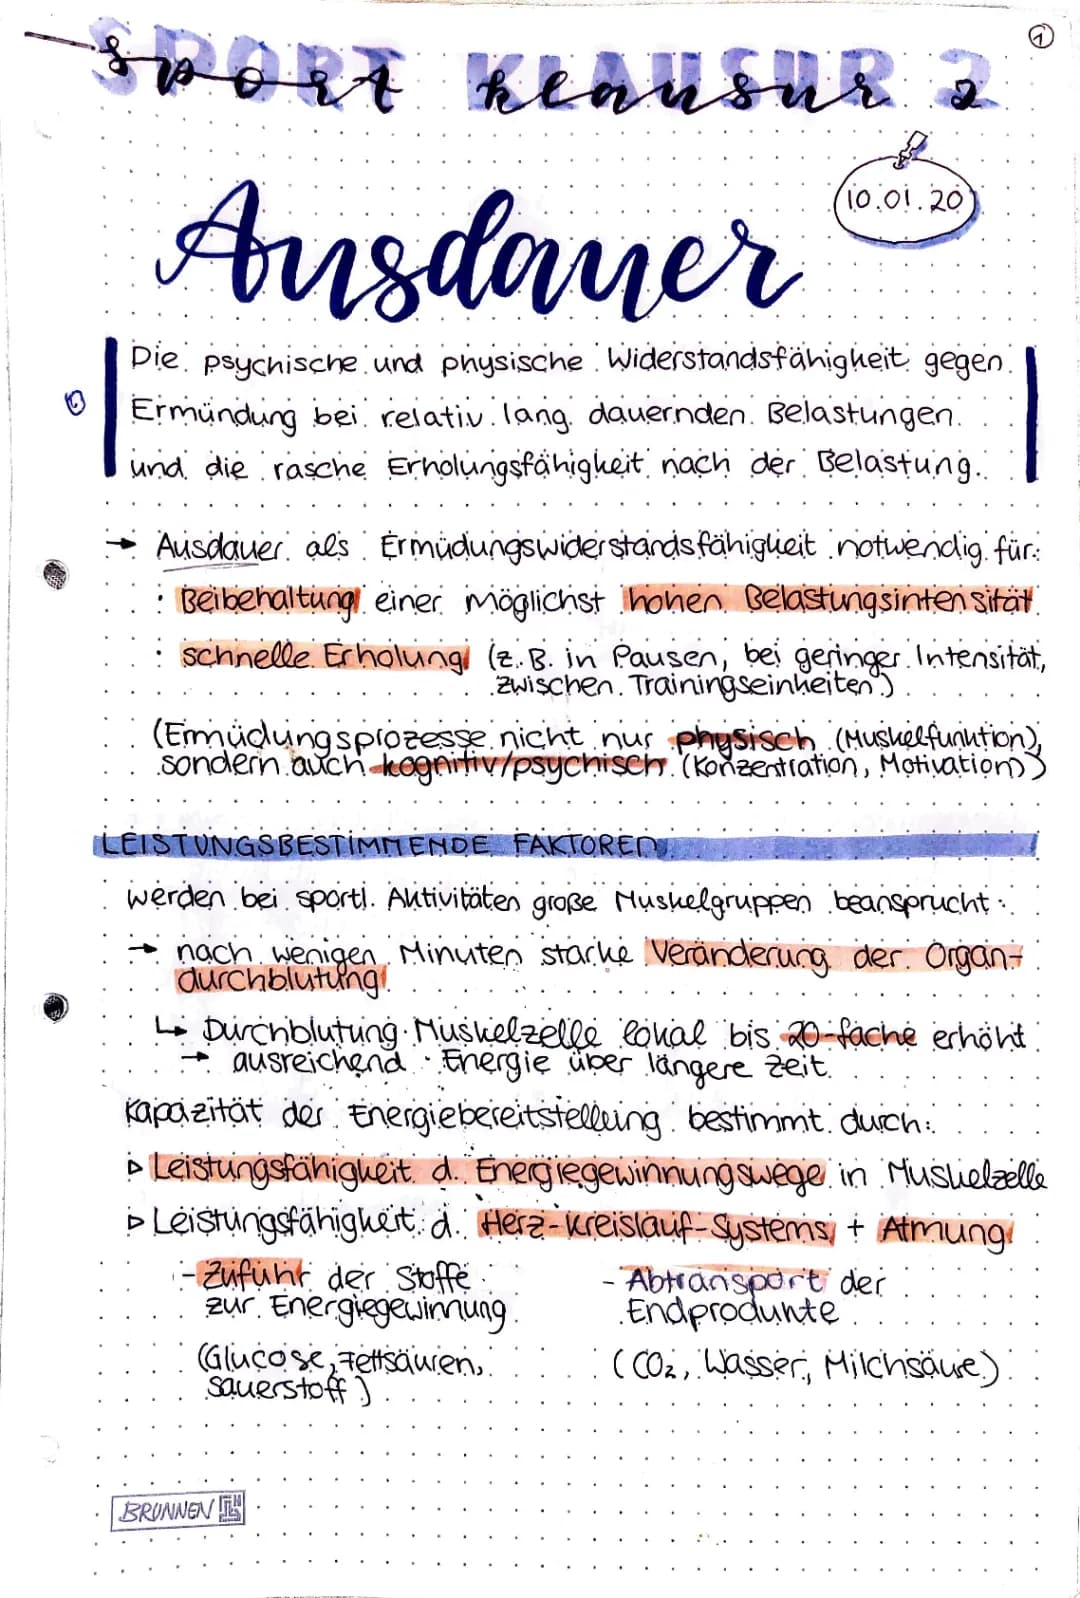 ①
SPORT KLAUSUR 2
sport klausur 2
10.01.20
Ausdauer
Die psychische und physische Widerstandsfähigkeit gegen
Ermündung bei relativ lang dauernden Belastungen
und die rasche Erholungsfähigkeit nach der Belastung.
→ Ausdauer als Ermüdungswiderstandsfähigkeit notwendig für:
: Beibehaltung einer möglichst hohen Belastungsintensität
: schnelle Erholung (z.B. in Pausen, bei geringer Intensität,
zwischen Trainingseinheiten)
(Ermüdungsprozesse nicht nur physisch (Muskelfunktion),
sondern auch kognitiv/psychisch (Konzentration, Motivation))
LEISTUNGSBESTIMMENDE FAKTOREN
werden bei sportl. Aktivitäten große Muskelgruppen beansprucht:
→ nach wenigen Minuten starke Veränderung der Organ-
durchblutung
↳ Durchblutung Muskelzelle lokal bis 20-fache erhöht
→ ausreichend Energie über längere Zeit
Kapazität der Energiebereitstelleing bestimmt durch:
▷ Leistungsfähigkeit d. Energiegewinnungswege in Muskelzelle
▷ Leistungsfähigkeit d. Herz-Kreislauf-Systems + Atmung
- Zufuhr der Stoffe
zur Energiegewinnung
(Glucose, Fettsäuren,
Sauerstoff)
- Abtransport der
Endprodukte
(CO₂, Wasser, Milchsäure)
BRUNNEN